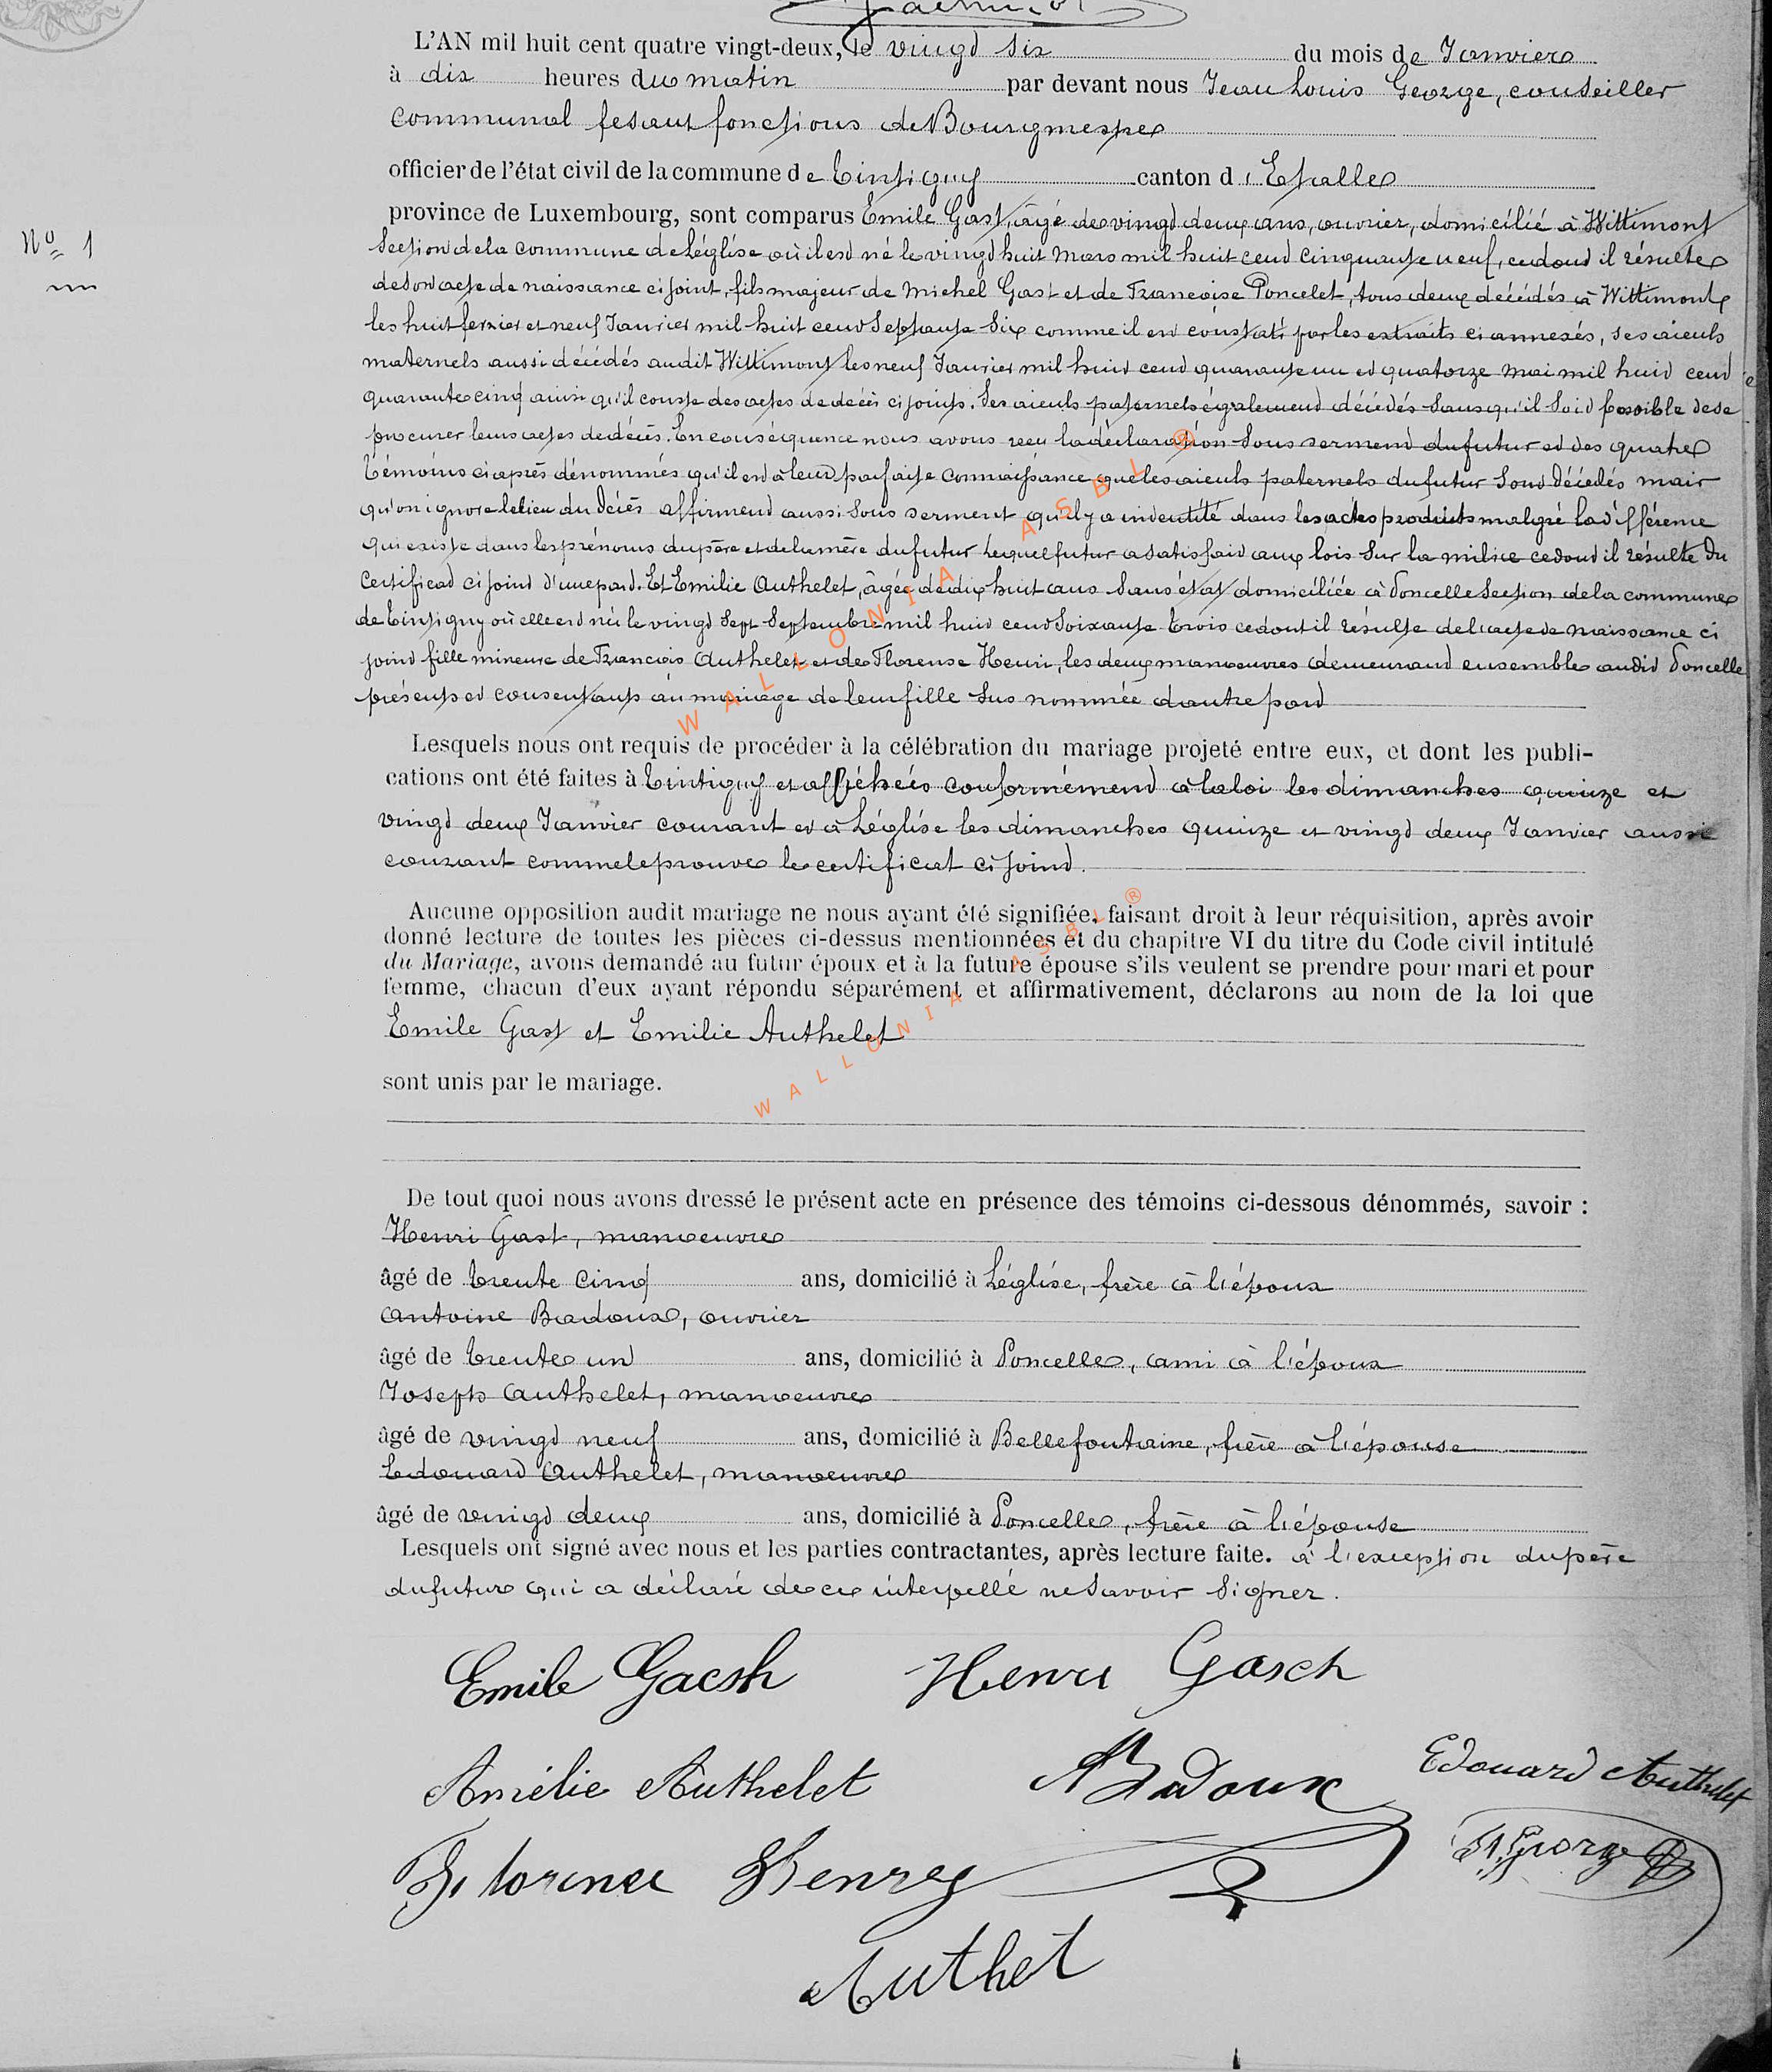 L'AN mil huit cent quatre vingt-deux, le vingd six du mois de Janvier
à dix heures du matin par devant nous Jean Louis George, conseiller
communal fesant fonctions de Bourgmestre
officier de l'état civil de la commune de Tintigny canton d'Etalle
province de Luxembourg, sont comparus Emile Gast, âgé de vingd deux ans, ouvrier, domicilié à Wittimont
N° 1
Section de la commune de Léglise où il est né le vingd huit Mars mil huit cend cinquante neuf, cedond il résulte
de son acte de naissance ci joint, fils majeur de Michel Gast et de Francoise Poncelet, tous deux décédés à Wittimont
les huit ferrier et neuf Janvier mil huit cend Septante Six comme il est constaté par les extraits ci annexés, ses aïeuls
maternels aussi décédés audit Wittimont les neuf Janvier mil huid cend quarante un et quatorze Mai mil huid cend
quarante cinq ainsi qu'il conste des actes de décès ci joints. Ses aïeuls paternels également décédés Sans qu'il Soid possible de se
procurer leurs actes de décès. En conséquence nous avons reçu la déclaration Sous serment du futur et des quatre
témoins ci après dénommés qu'il est à leur parfaite connaissance que les aïeuls paternels du futur Sont décédés mais
qu'on ignore le lieu du décès affirment aussi Sous serment qu'il y a indentité dans les actes produits malgré la différence
qui existe dans les prénoms du père et de la mère du futur Lequel futur a satisfaid aux lois Sur la milice cedond il résulte du
Certificad ci joind d'une pard. Et Emilie Authelet, âgée de dix huit ans Sans état domiciliée à Poncelle Section de la commune
de Tintigny où elle est née le vingd Sept Septembre mil huid cend Soixante trois cedont il résulte de l'acte de naissance ci
joind fille mineure de Francois Authelet et de Florense Henri, les deux manœuvres demeurand ensemble audid Poncelle
présents et consentants au mariage de leur fille Sus nommée d'autre pard
Lesquels nous ont requis de procéder à la célébration du mariage projeté entre eux, et dont les publi-
cations ont été faites à Tintigny et affichées conformémend à la loi les dimanches quinze et
vingd deux Janvier courant et à Léglise les dimanches quinze et vingd deux Janvier aussi
courant comme le prouve le certificat ci joind.
Aucune opposition audit mariage ne nous ayant été signifiée, faisant droit à leur réquisition, après avoir
donné lecture de toutes les pièces ci-dessus mentionnées et du chapitre VI du titre du Code civil intitulé
du Mariage, avons demandé au futur époux et à la future épouse s'ils veulent se prendre pour mari et pour
femme, chacun d'eux ayant répondu séparément et affirmativement, déclarons au nom de la loi que
Emile Gast et Emilie Authelet
sont unis par le mariage.
De tout quoi nous avons dressé le présent acte en présence des témoins ci-dessous dénommés, savoir :
Henri Gast, manœuvre
âgé de trente cinq ans, domicilié à Léglise, frère à l'époux
Antoine Badoux, ouvrier
âgé de trente un ans, domicilié à Poncelle, ami à l'époux
Joseph Authelet, manœuvre
âgé de vingd neuf ans, domicilié à Bellefontaine, frère à l'épouse
Edouard Authelet, manœuvre
âgé de vingd deux ans, domicilié à Poncelle, frère à l'épouse
Lesquels ont signé avec nous et les parties contractantes, après lecture faite. à l'exception du père
du future qui a déclaré de ce interpellé ne savoir Signer.
Emile Gacsh Henri Gasch
Amélie Authelet A Badoux Edouard Authelet
Florence Henrey George
Authet
WALLONIA ASBL ®
WALLONIA ASBL ®